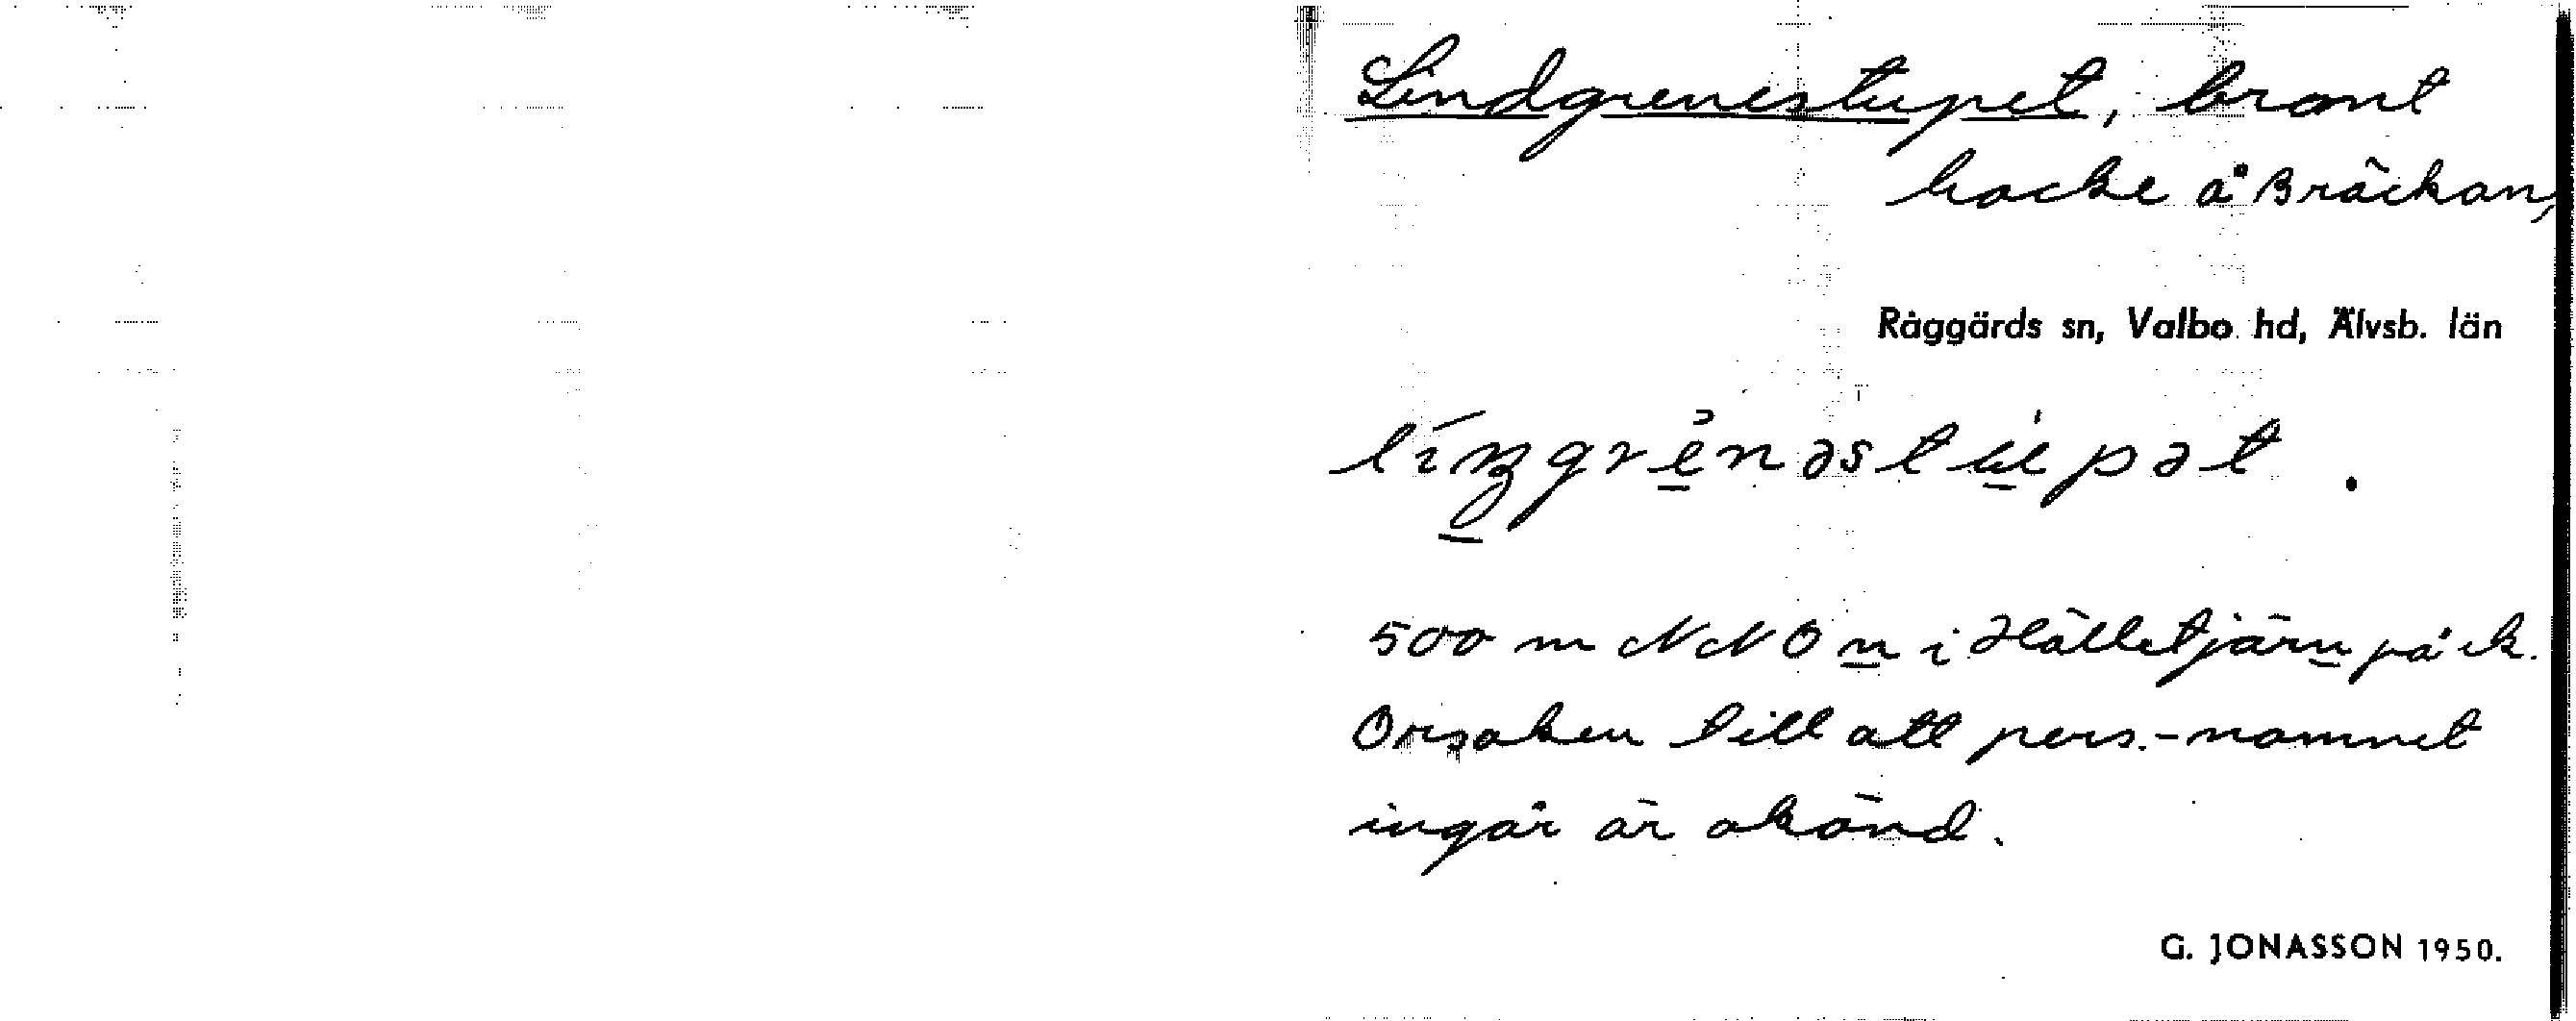 Lindgrenestupet, brant
backe å Bräckan,
Råggärds sn, Valbo hd, Älvsb. län
500 m NNO n i Hälletjärn på ek.
Orsaken till att pers.-namnet
ingår är okänd.
G. JONASSON 1950.